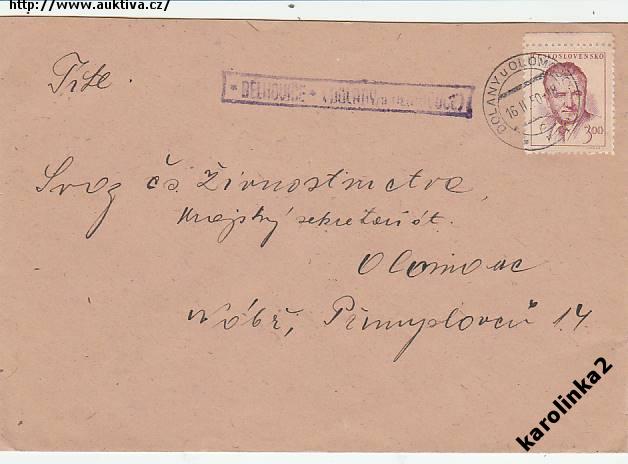 http://www.auktiva.cz/
Titl.
* BĚLKOVICE * (DOLANY u OLOMOUCE)
DOLANY U OLOMOUCE
16.II.50-18
ČESKOSLOVENSKO
3,00
Svaz čs. Živnostnictva,
Krajský sekretariát.
Olomouc
Nábř. Přemyslovců 14
karolinka2